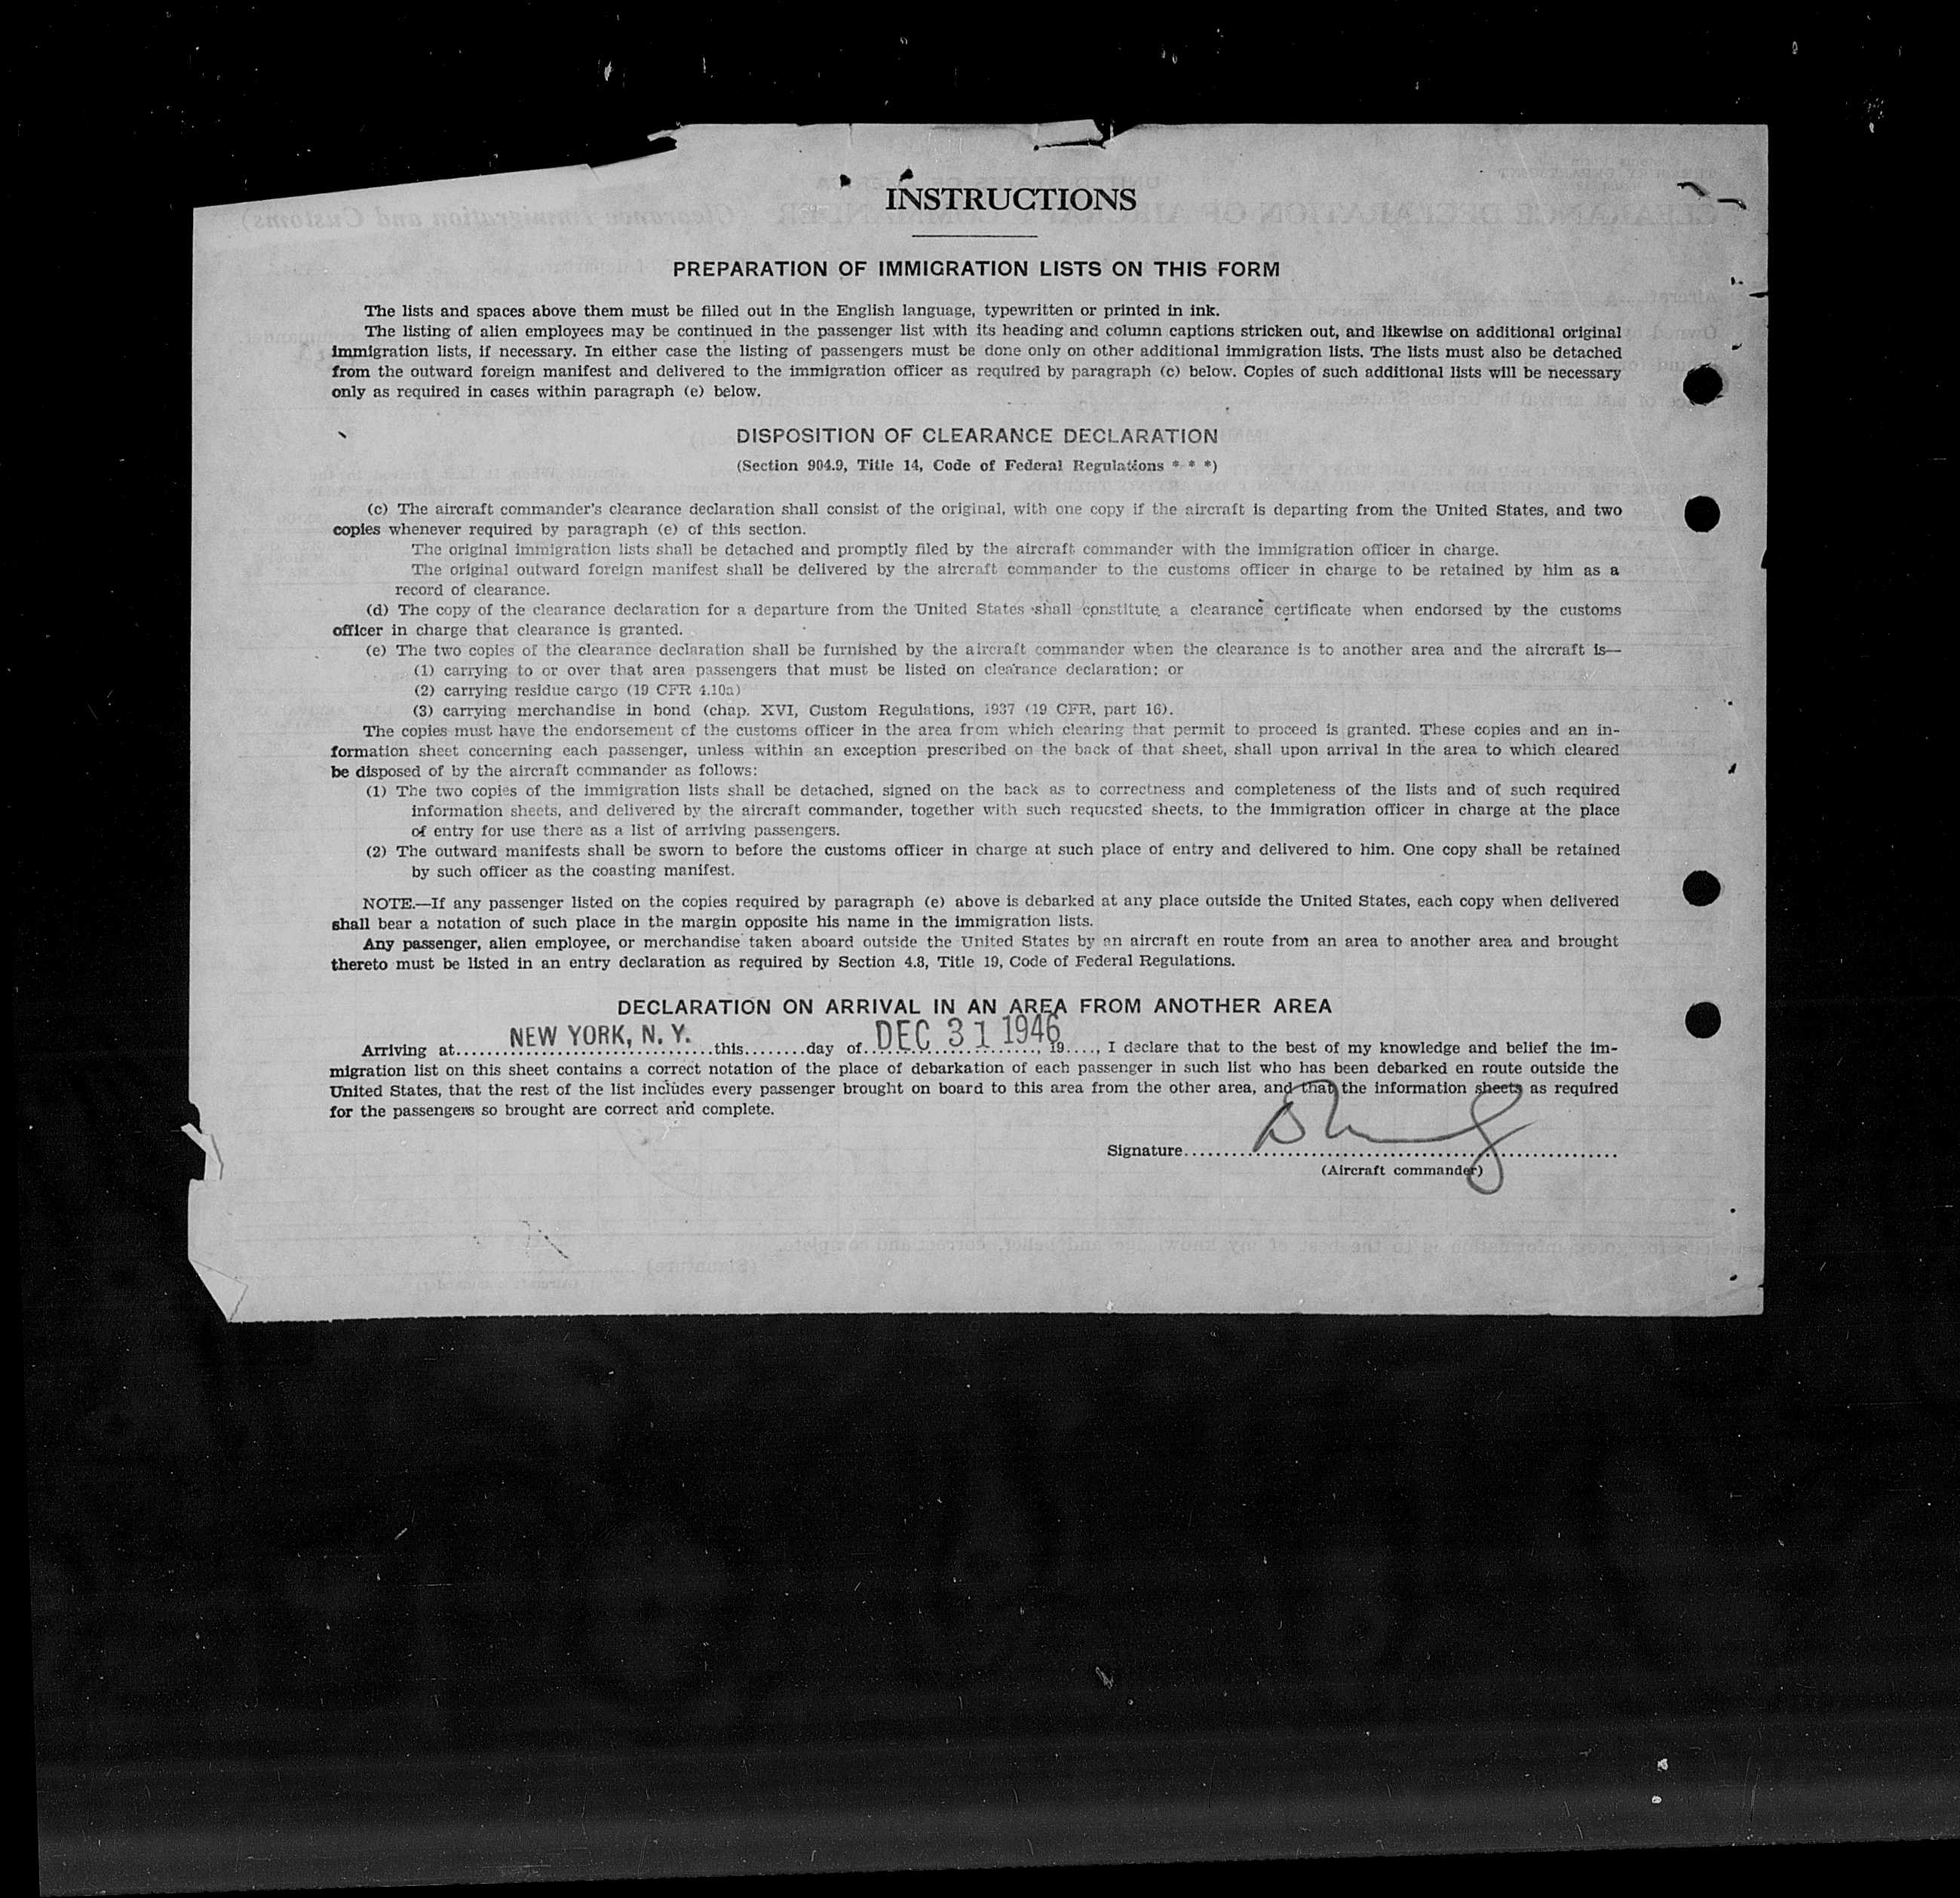 INSTRUCTIONS
PREPARATION OF IMMIGRATION LISTS ON THIS FORM
The lists and spaces above them must be filled out in the English language, typewritten or printed in ink.
The listing of alien employees may be continued in the passenger list with its heading and column captions stricken out, and likewise on additional original
immigration lists, if necessary. In either case the listing of passengers must be done only on other additional immigration lists. The lists must also be detached
from the outward foreign manifest and delivered to the immigration officer as required by paragraph (c) below. Copies of such additional lists will be necessary
only as required in cases within paragraph (e) below.
DISPOSITION OF CLEARANCE DECLARATION
(Section 904.9, Title 14, Code of Federal Regulations * * *)
(c) The aircraft commander's clearance declaration shall consist of the original, with one copy if the aircraft is departing from the United States, and two
copies whenever required by paragraph (e) of this section.
The original immigration lists shall be detached and promptly filed by the aircraft commander with the immigration officer in charge.
The original outward foreign manifest shall be delivered by the aircraft commander to the customs officer in charge to be retained by him as a
record of clearance.
(d) The copy of the clearance declaration for a departure from the United States shall constitute a clearance certificate when endorsed by the customs
officer in charge that clearance is granted.
(e) The two copies of the clearance declaration shall be furnished by the aircraft commander when the clearance is to another area and the aircraft is—
(1) carrying to or over that area passengers that must be listed on clearance declaration; or
(2) carrying residue cargo (19 CFR 4.10a)
(3) carrying merchandise in bond (chap. XVI, Custom Regulations, 1937 (19 CFR, part 16).
The copies must have the endorsement of the customs officer in the area from which clearing that permit to proceed is granted. These copies and an in-
formation sheet concerning each passenger, unless within an exception prescribed on the back of that sheet, shall upon arrival in the area to which cleared
be disposed of by the aircraft commander as follows:
(1) The two copies of the immigration lists shall be detached, signed on the back as to correctness and completeness of the lists and of such required
information sheets, and delivered by the aircraft commander, together with such requested sheets, to the immigration officer in charge at the place
of entry for use there as a list of arriving passengers.
(2) The outward manifests shall be sworn to before the customs officer in charge at such place of entry and delivered to him. One copy shall be retained
by such officer as the coasting manifest.
NOTE.—If any passenger listed on the copies required by paragraph (e) above is debarked at any place outside the United States, each copy when delivered
shall bear a notation of such place in the margin opposite his name in the immigration lists.
Any passenger, alien employee, or merchandise taken aboard outside the United States by an aircraft en route from an area to another area and brought
thereto must be listed in an entry declaration as required by Section 4.8, Title 19, Code of Federal Regulations.
DECLARATION ON ARRIVAL IN AN AREA FROM ANOTHER AREA
Arriving at NEW YORK, N. Y. this........day of DEC 31 1946, 19...., I declare that to the best of my knowledge and belief the im-
migration list on this sheet contains a correct notation of the place of debarkation of each passenger in such list who has been debarked en route outside the
United States, that the rest of the list includes every passenger brought on board to this area from the other area, and that the information sheets as required
for the passengers so brought are correct and complete.
Signature
(Aircraft commander)